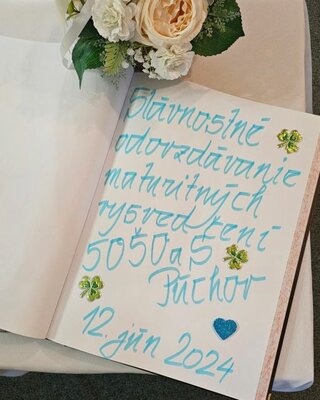 Slávnostné
odovzdávanie
maturitných
vysvedčení
SOŠOaS
Púchov
12. jún 2024